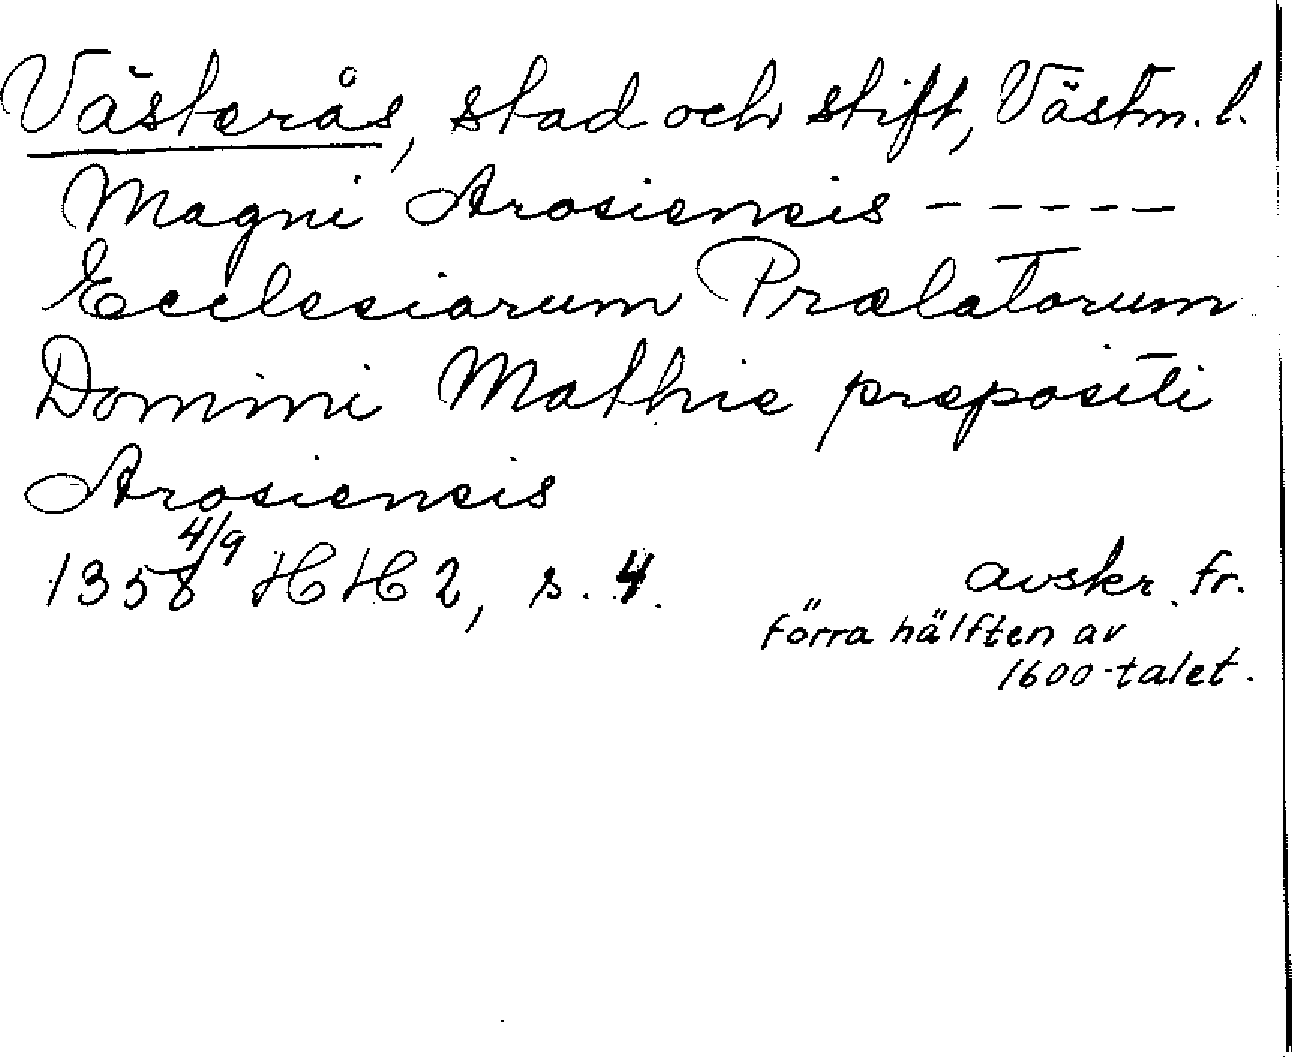 Västerås, stad och stift, Västm. l.
Magni Arosiensis - - - - -
Ecclesiarum Prælatorum
Domini Mathie prepositi
Arosiensis
1358 4/9 HH 2, s. 4.
avskr. fr.
förra hälften av
1600-talet.